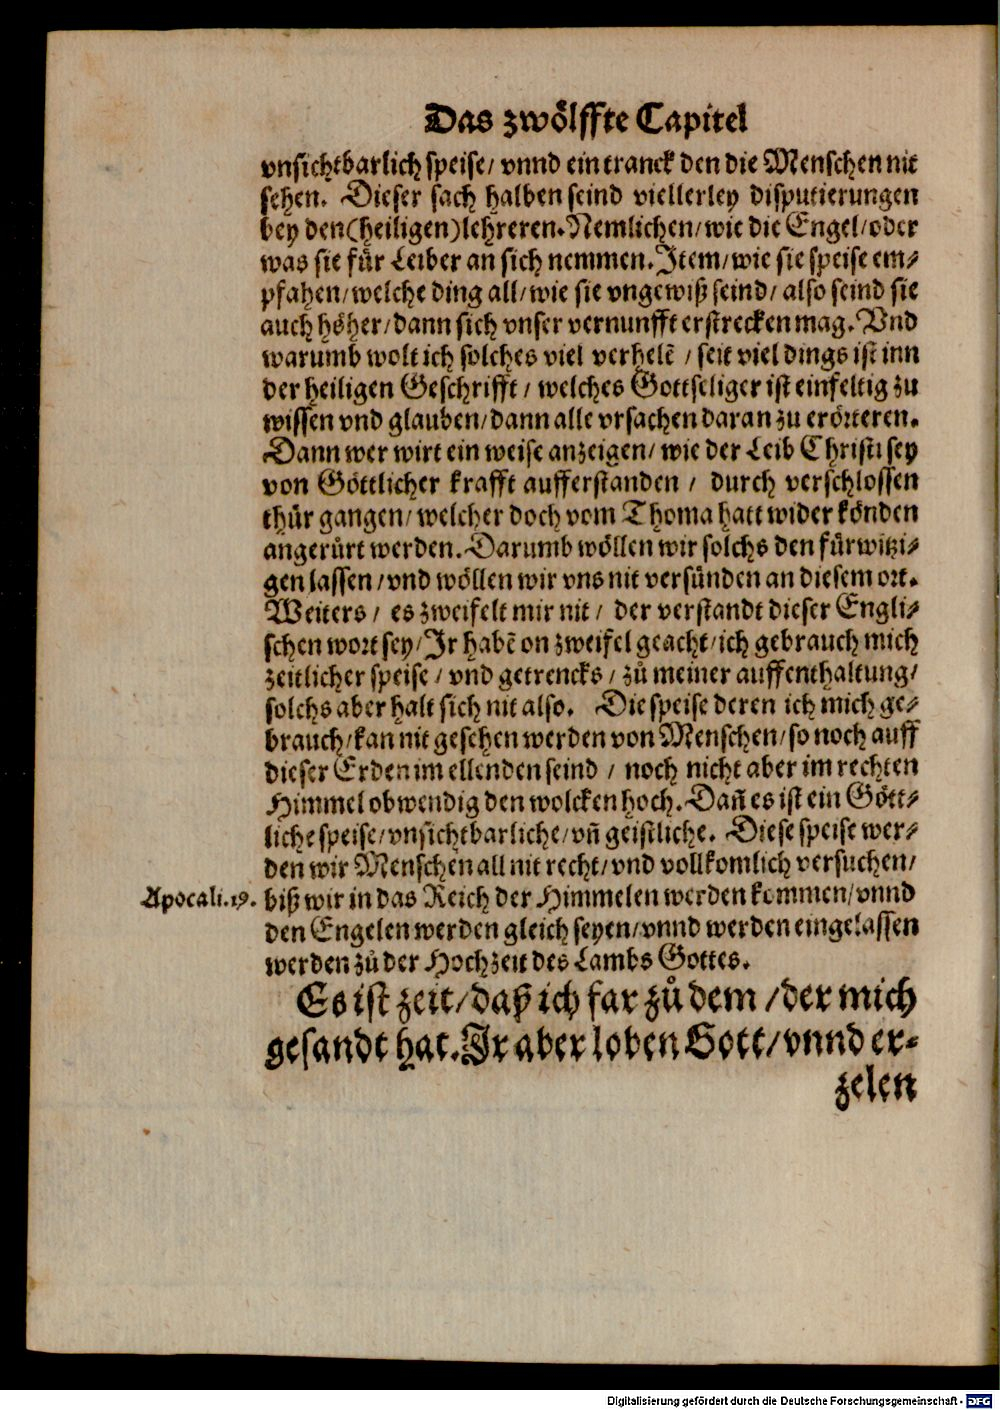 Das zwoͤlffte Capitel
vnsichtbarlich speise/ vnnd ein tranck den die Menschen nit
sehen. Dieser sach halben seind viellerley disputierungen
bey den (heiligen) lehreren. Nemlichen/ wie die Engel/ oder
was sie fuͤr Leiber an sich nemmen. Item/ wie sie speise em⸗
pfahen/ welche ding all/ wie sie vngewiß seind/ also seind sie
auch hoͤher/ dann sich vnser vernunfft erstrecken mag. Vnd
warumb wolt ich solches viel verhelē / seit viel dings ist inn
der heiligen Geschrifft / welches Gottseliger ist einfeltig zu
wissen vnd glauben/ dann alle vrsachen daran zu eroͤrteren.
Dann wer wirt ein weise anzeigen/ wie der Leib Christi sey
von Goͤttlicher krafft aufferstanden / durch verschlossen
thuͤr gangen/ welcher doch vom Thoma hatt wider koͤnden
angeruͤrt werden. Darumb woͤllen wir solchs den fuͤrwitzi⸗
gen lassen/ vnd woͤllen wir vns nit versuͤnden an diesem ort.
Weiters / es zweifelt mir nit / der verstandt dieser Engli⸗
schen wort sey/ Ir habē on zweifel geacht/ ich gebrauch mich
zeitlicher speise / vnd getrencks / zuͦ meiner auffenthaltung/
solchs aber halt sich nit also. Die speise deren ich mich ge⸗
brauch/ kan nit gesehen werden von Menschen/ so noch auff
dieser Erden im ellenden seind / noch nicht aber im rechten
Himmel obwendig den wolcken hoch. Dañ es ist ein Goͤtt⸗
liche speise/ vnsichtbarliche/ vñ geistliche. Diese speise wer⸗
den wir Menschen all nit recht/ vnd vollkomlich versuchen/
Apocali. 19.
biß wir in das Reich der Himmelen werden kommen/ vnnd
den Engelen werden gleich seyen/ vnnd werden eingelassen
werden zuͦ der Hochzeit des Lambs Gottes.
Es ist zeit/ daß ich far zuͦ dem / der mich
gesandt hat. Ir aber loben Gott/ vnnd er⸗
zelen
Digitalisierung gefördert durch die Deutsche Forschungsgemeinschaft - DFG